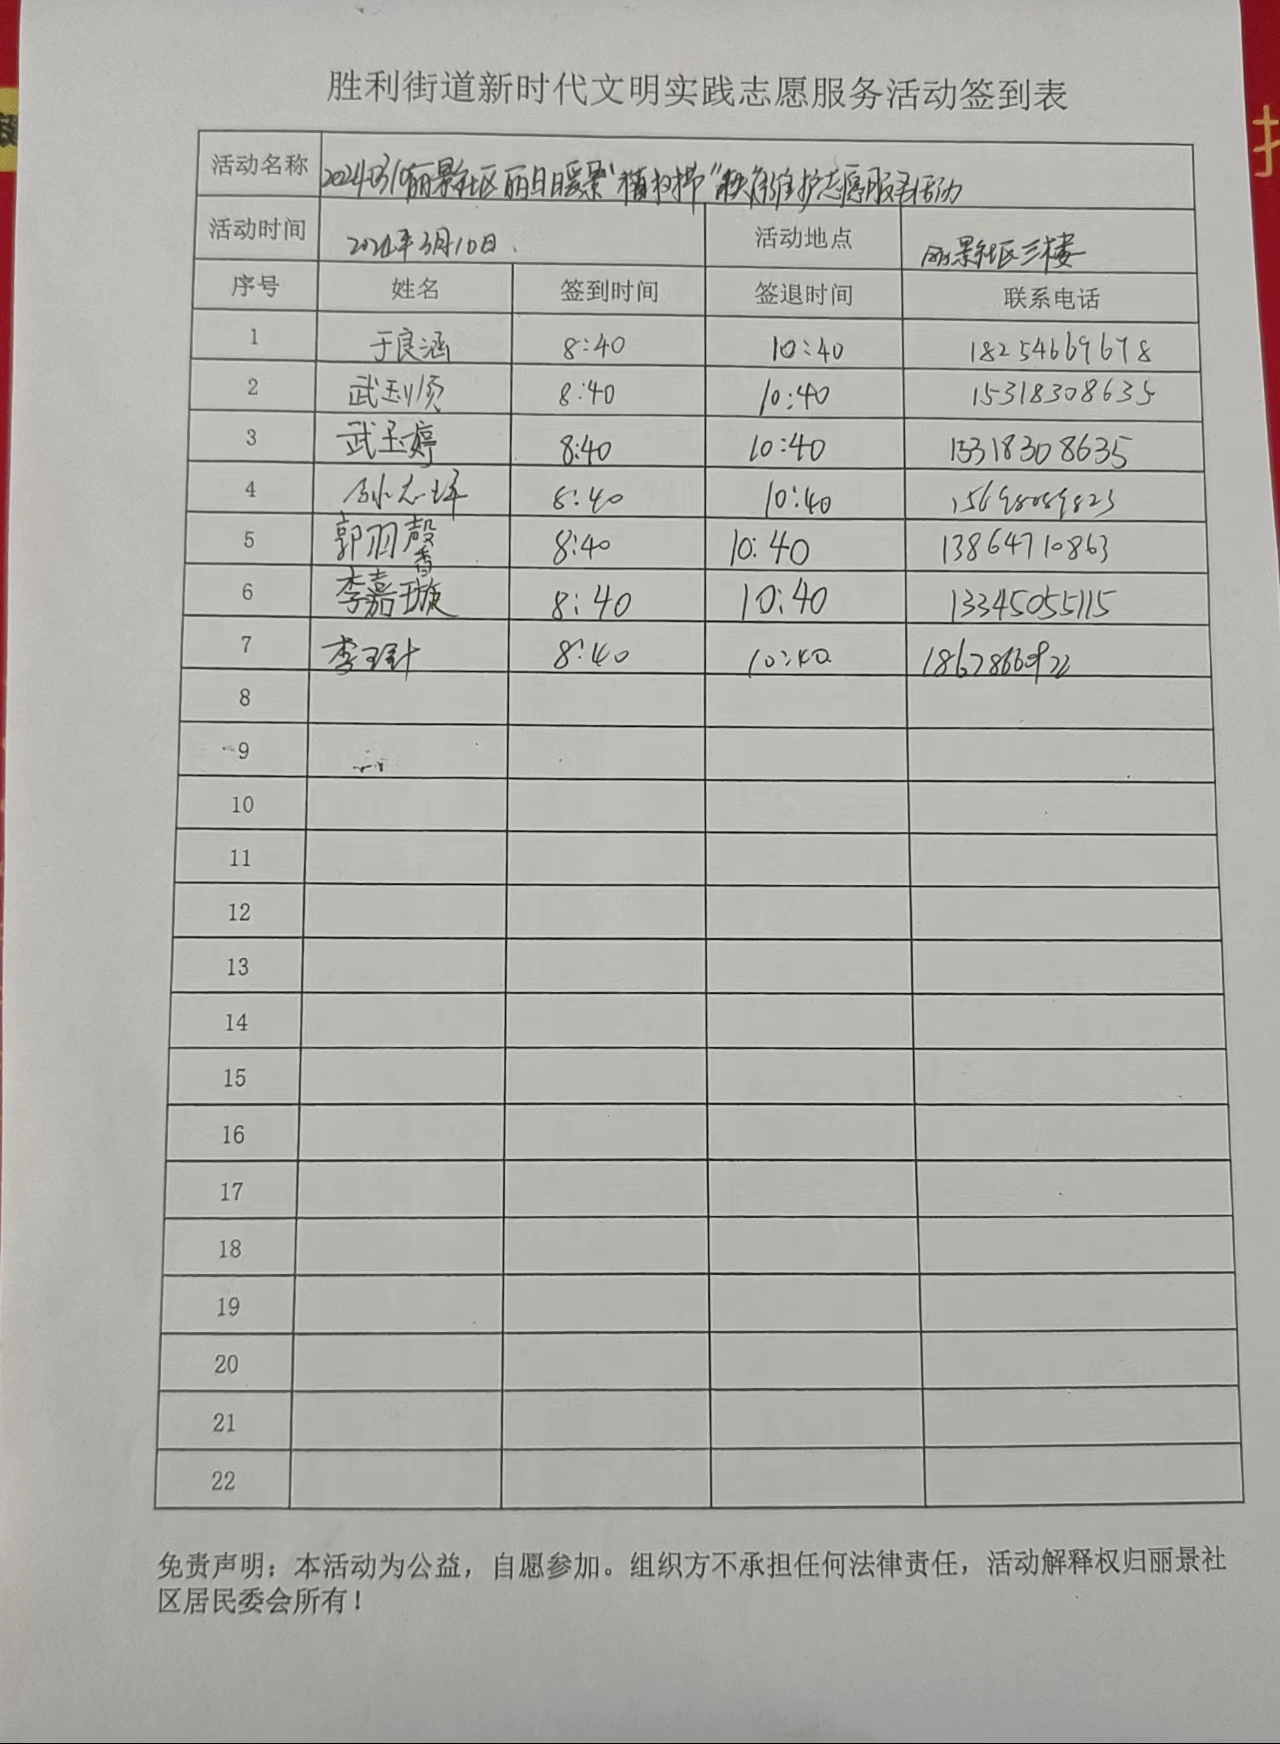 胜利街道新时代文明实践志愿服务活动签到表
活动名称 20240310丽景社区丽日暖景"植树节"秩序维护志愿服务活动
活动时间 2024年3月10日. 活动地点 丽景社区三楼
序号 姓名 签到时间 签退时间 联系电话
1 于良涵 8:40 10:40 18254669678
2 武 8:40 10:40 15318308635
3 武玉婷 8:40 10:40 15318308635
4 8:40 10:40
5 郭羽馨 8:40 10:40 13864710863
6 李嘉璇 8:40 10:40 13345055115
7 李 8:40 10:40
8
9
10
11
12
13
14
15
16
17
18
19
20
21
22
免责声明：本活动为公益，自愿参加。组织方不承担任何法律责任，活动解释权归丽景社
区居民委会所有！